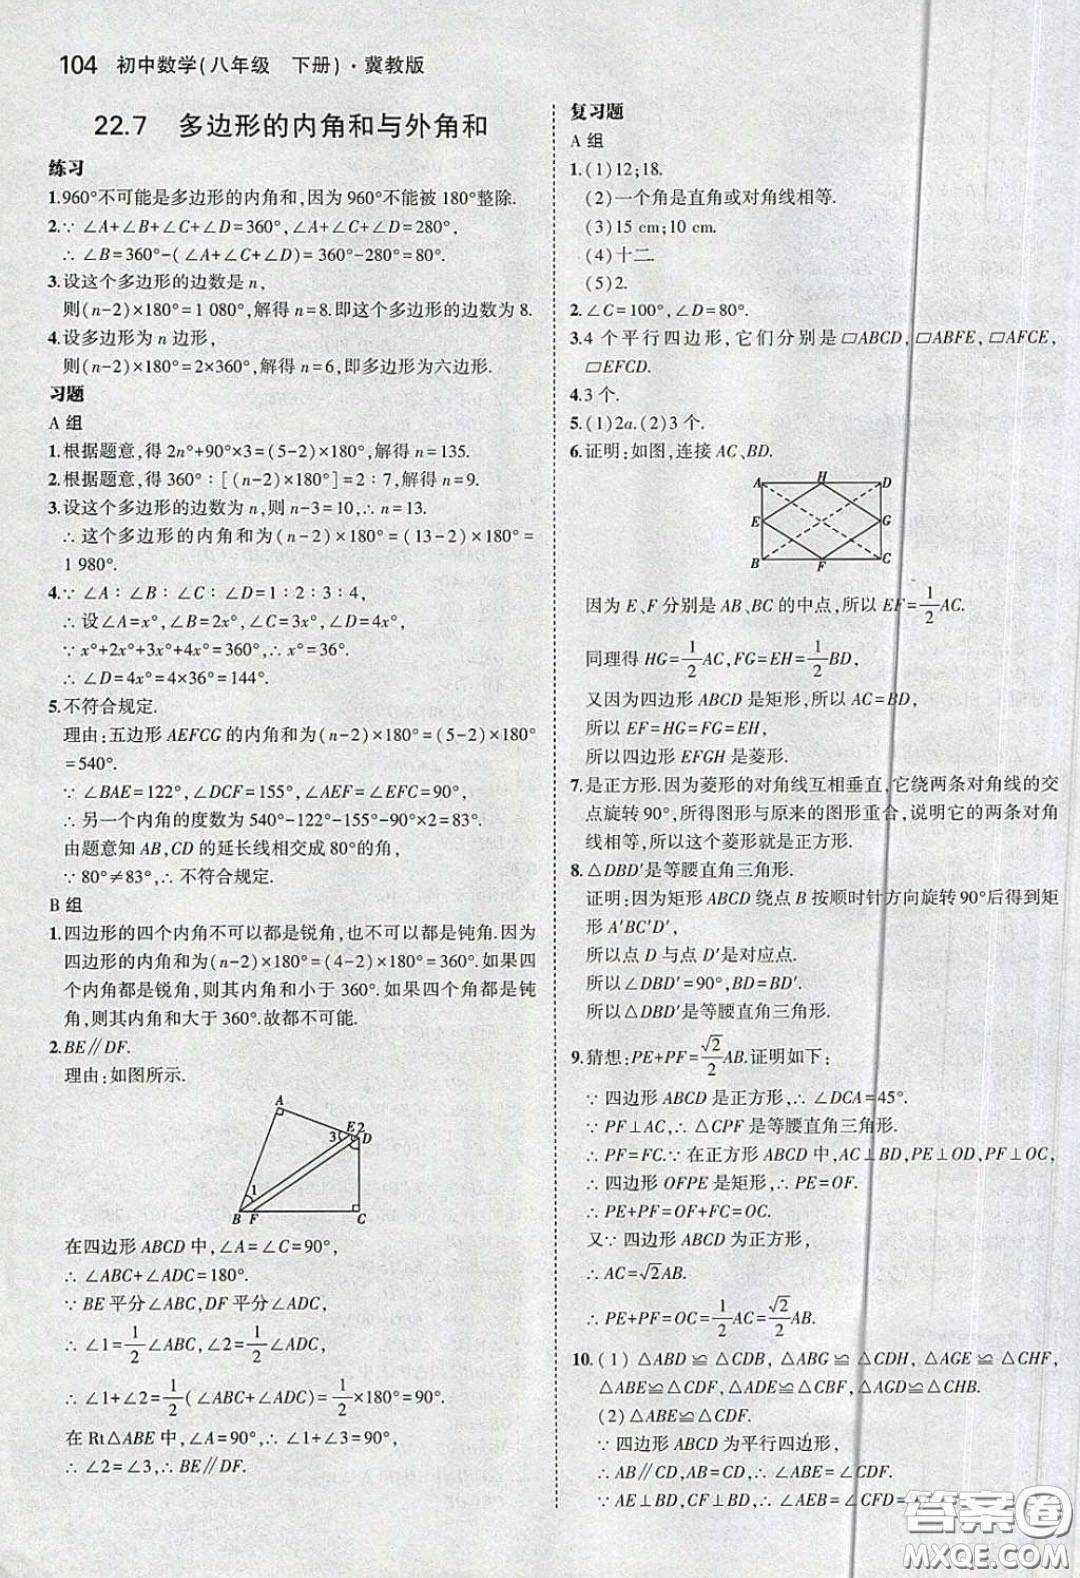 104 初中数学(八年级 下册)·冀教版
22.7 多边形的内角和与外角和
练习
1.960°不可能是多边形的内角和,因为960°不能被180°整除.
2.∵ ∠A+∠B+∠C+∠D=360°,∠A+∠C+∠D=280°,
∴ ∠B=360°-(∠A+∠C+∠D)=360°-280°=80°.
3.设这个多边形的边数是n,
则(n-2)×180°=1 080°,解得n=8.即这个多边形的边数为8.
4.设多边形为n边形,
则(n-2)×180°=2×360°,解得n=6,即多边形为六边形.
习题
A组
1.根据题意,得2n°+90°×3=(5-2)×180°,解得n=135.
2.根据题意,得360°∶[(n-2)×180°]=2∶7,解得n=9.
3.设这个多边形的边数为n,则n-3=10,∴ n=13.
∴ 这个多边形的内角和为(n-2)×180°=(13-2)×180°=
1 980°.
4.∵ ∠A∶∠B∶∠C∶∠D=1∶2∶3∶4,
∴ 设∠A=x°,∠B=2x°,∠C=3x°,∠D=4x°,
∵ x°+2x°+3x°+4x°=360°,∴ x°=36°.
∴ ∠D=4x°=4×36°=144°.
5.不符合规定.
理由:五边形AEFCG的内角和为(n-2)×180°=(5-2)×180°
=540°.
∵ ∠BAE=122°,∠DCF=155°,∠AEF=∠EFC=90°,
∴ 另一个内角的度数为540°-122°-155°-90°×2=83°.
由题意知AB,CD的延长线相交成80°的角,
∵ 80°≠83°,∴ 不符合规定.
B组
1.四边形的四个内角不可以都是锐角,也不可以都是钝角.因为
四边形的内角和为(n-2)×180°=(4-2)×180°=360°.如果四
个内角都是锐角,则其内角和小于360°.如果四个角都是钝
角,则其内角和大于360°.故都不可能.
2.BE∥DF.
理由:如图所示.
A
3 E 2 D
1
B F C
在四边形ABCD中,∠A=∠C=90°,
∴ ∠ABC+∠ADC=180°.
∵ BE平分∠ABC,DF平分∠ADC,
∴ ∠1=1/2∠ABC,∠2=1/2∠ADC,
∴ ∠1+∠2=1/2(∠ABC+∠ADC)=1/2×180°=90°.
在Rt△ABE中,∠A=90°,∴ ∠1+∠3=90°.
∴ ∠2=∠3,∴ BE∥DF.
复习题
A组
1.(1)12;18.
(2)一个角是直角或对角线相等.
(3)15 cm;10 cm.
(4)十二.
(5)2.
2.∠C=100°,∠D=80°.
3.4个平行四边形,它们分别是▱ABCD,▱ABFE,▱AFCE,
▱EFCD.
4.3个.
5.(1)2a.(2)3个.
6.证明:如图,连接AC、BD.
A H D
E G
B F C
因为E、F分别是AB、BC的中点,所以EF=1/2AC.
同理得HG=1/2AC,FG=EH=1/2BD,
又因为四边形ABCD是矩形,所以AC=BD,
所以EF=HG=FG=EH,
所以四边形EFGH是菱形.
7.是正方形.因为菱形的对角线互相垂直,它绕两条对角线的交
点旋转90°,所得图形与原来的图形重合,说明它的两条对角
线相等,所以这个菱形就是正方形.
8.△DBD′是等腰直角三角形.
证明:因为矩形ABCD绕点B按顺时针方向旋转90°后得到矩
形A′BC′D′,
所以点D与点D′是对应点.
所以∠DBD′=90°,BD=BD′.
所以△DBD′是等腰直角三角形.
9.猜想:PE+PF=√2/2AB.证明如下:
∵ 四边形ABCD是正方形,∴ ∠DCA=45°.
∵ PF⊥AC,∴ △CPF是等腰直角三角形.
∴ PF=FC.∵ 在正方形ABCD中,AC⊥BD,PE⊥OD,PF⊥OC,
∴ 四边形OFPE是矩形,∴ PE=OF.
∴ PE+PF=OF+FC=OC.
又∵ 四边形ABCD为正方形,
∴ AC=√2AB.
∴ PE+PF=OC=1/2AC=√2/2AB.
10.(1) △ABD≌△CDB, △ABG≌△CDH, △AGE≌△CHF,
△ABE≌△CDF,△ADE≌△CBF,△AGD≌△CHB.
(2)△ABE≌△CDF.
∵ 四边形ABCD为平行四边形,
∴ AB∥CD,AB=CD,∴ ∠ABE=∠CDF.
∵ AE⊥BD,CF⊥BD,∴ ∠AEB=∠CFD=
答案圈
MXQE.COM